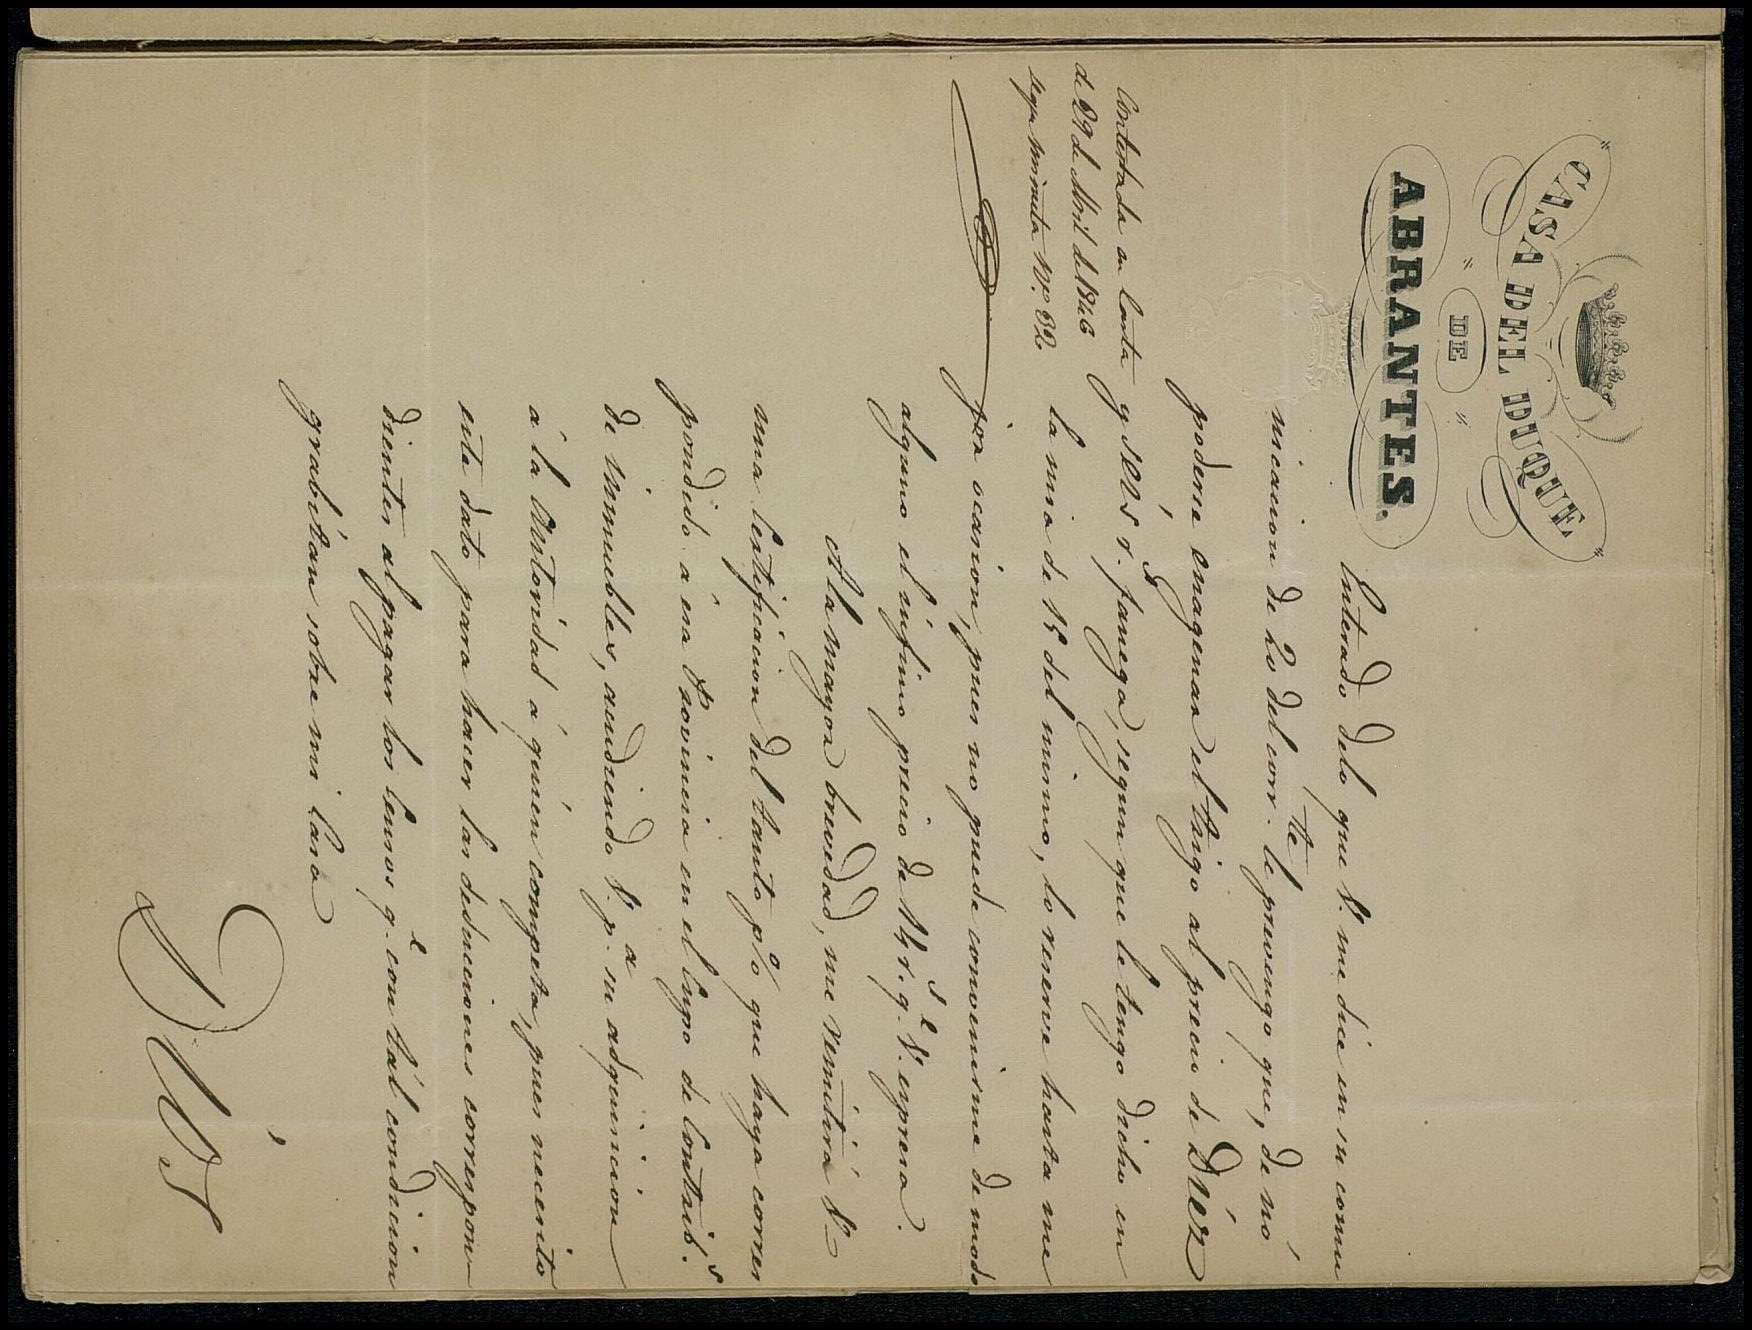 CASA DEL DUQUE
DE
ABRANTES.
Contestada en Carta
de 29 de Abril de 1846
segn minuta Nº. 82
Enterado delo que V. me dice en su comu
nicacion de 20 del corr.te le prevengo que, de nó
poderse enagenar el trigo al precio de Diéz
y séis r.s fanega, segun que le tengo dicho en
la mia de 15 del mismo, lo reserve hasta me
jor ocasion, pues no puede convenirme de modo
alguno el infimo precio de 14 r.s q.e V. espresa.
A la mayor brevedad, me remitirá V.
una Certificacion del tanto p% que haya corres
pondido á esa Provincia en el Cupo de Contrib.s
de inmuebles, acudiendo V. p.a su adquisicion
á la Autoridad á quién competa, pues necesito
este dato para hacer las deducciones correspon
dientes al pagar los Censos q.e con tál condicion
grabitan sobre mi Casa